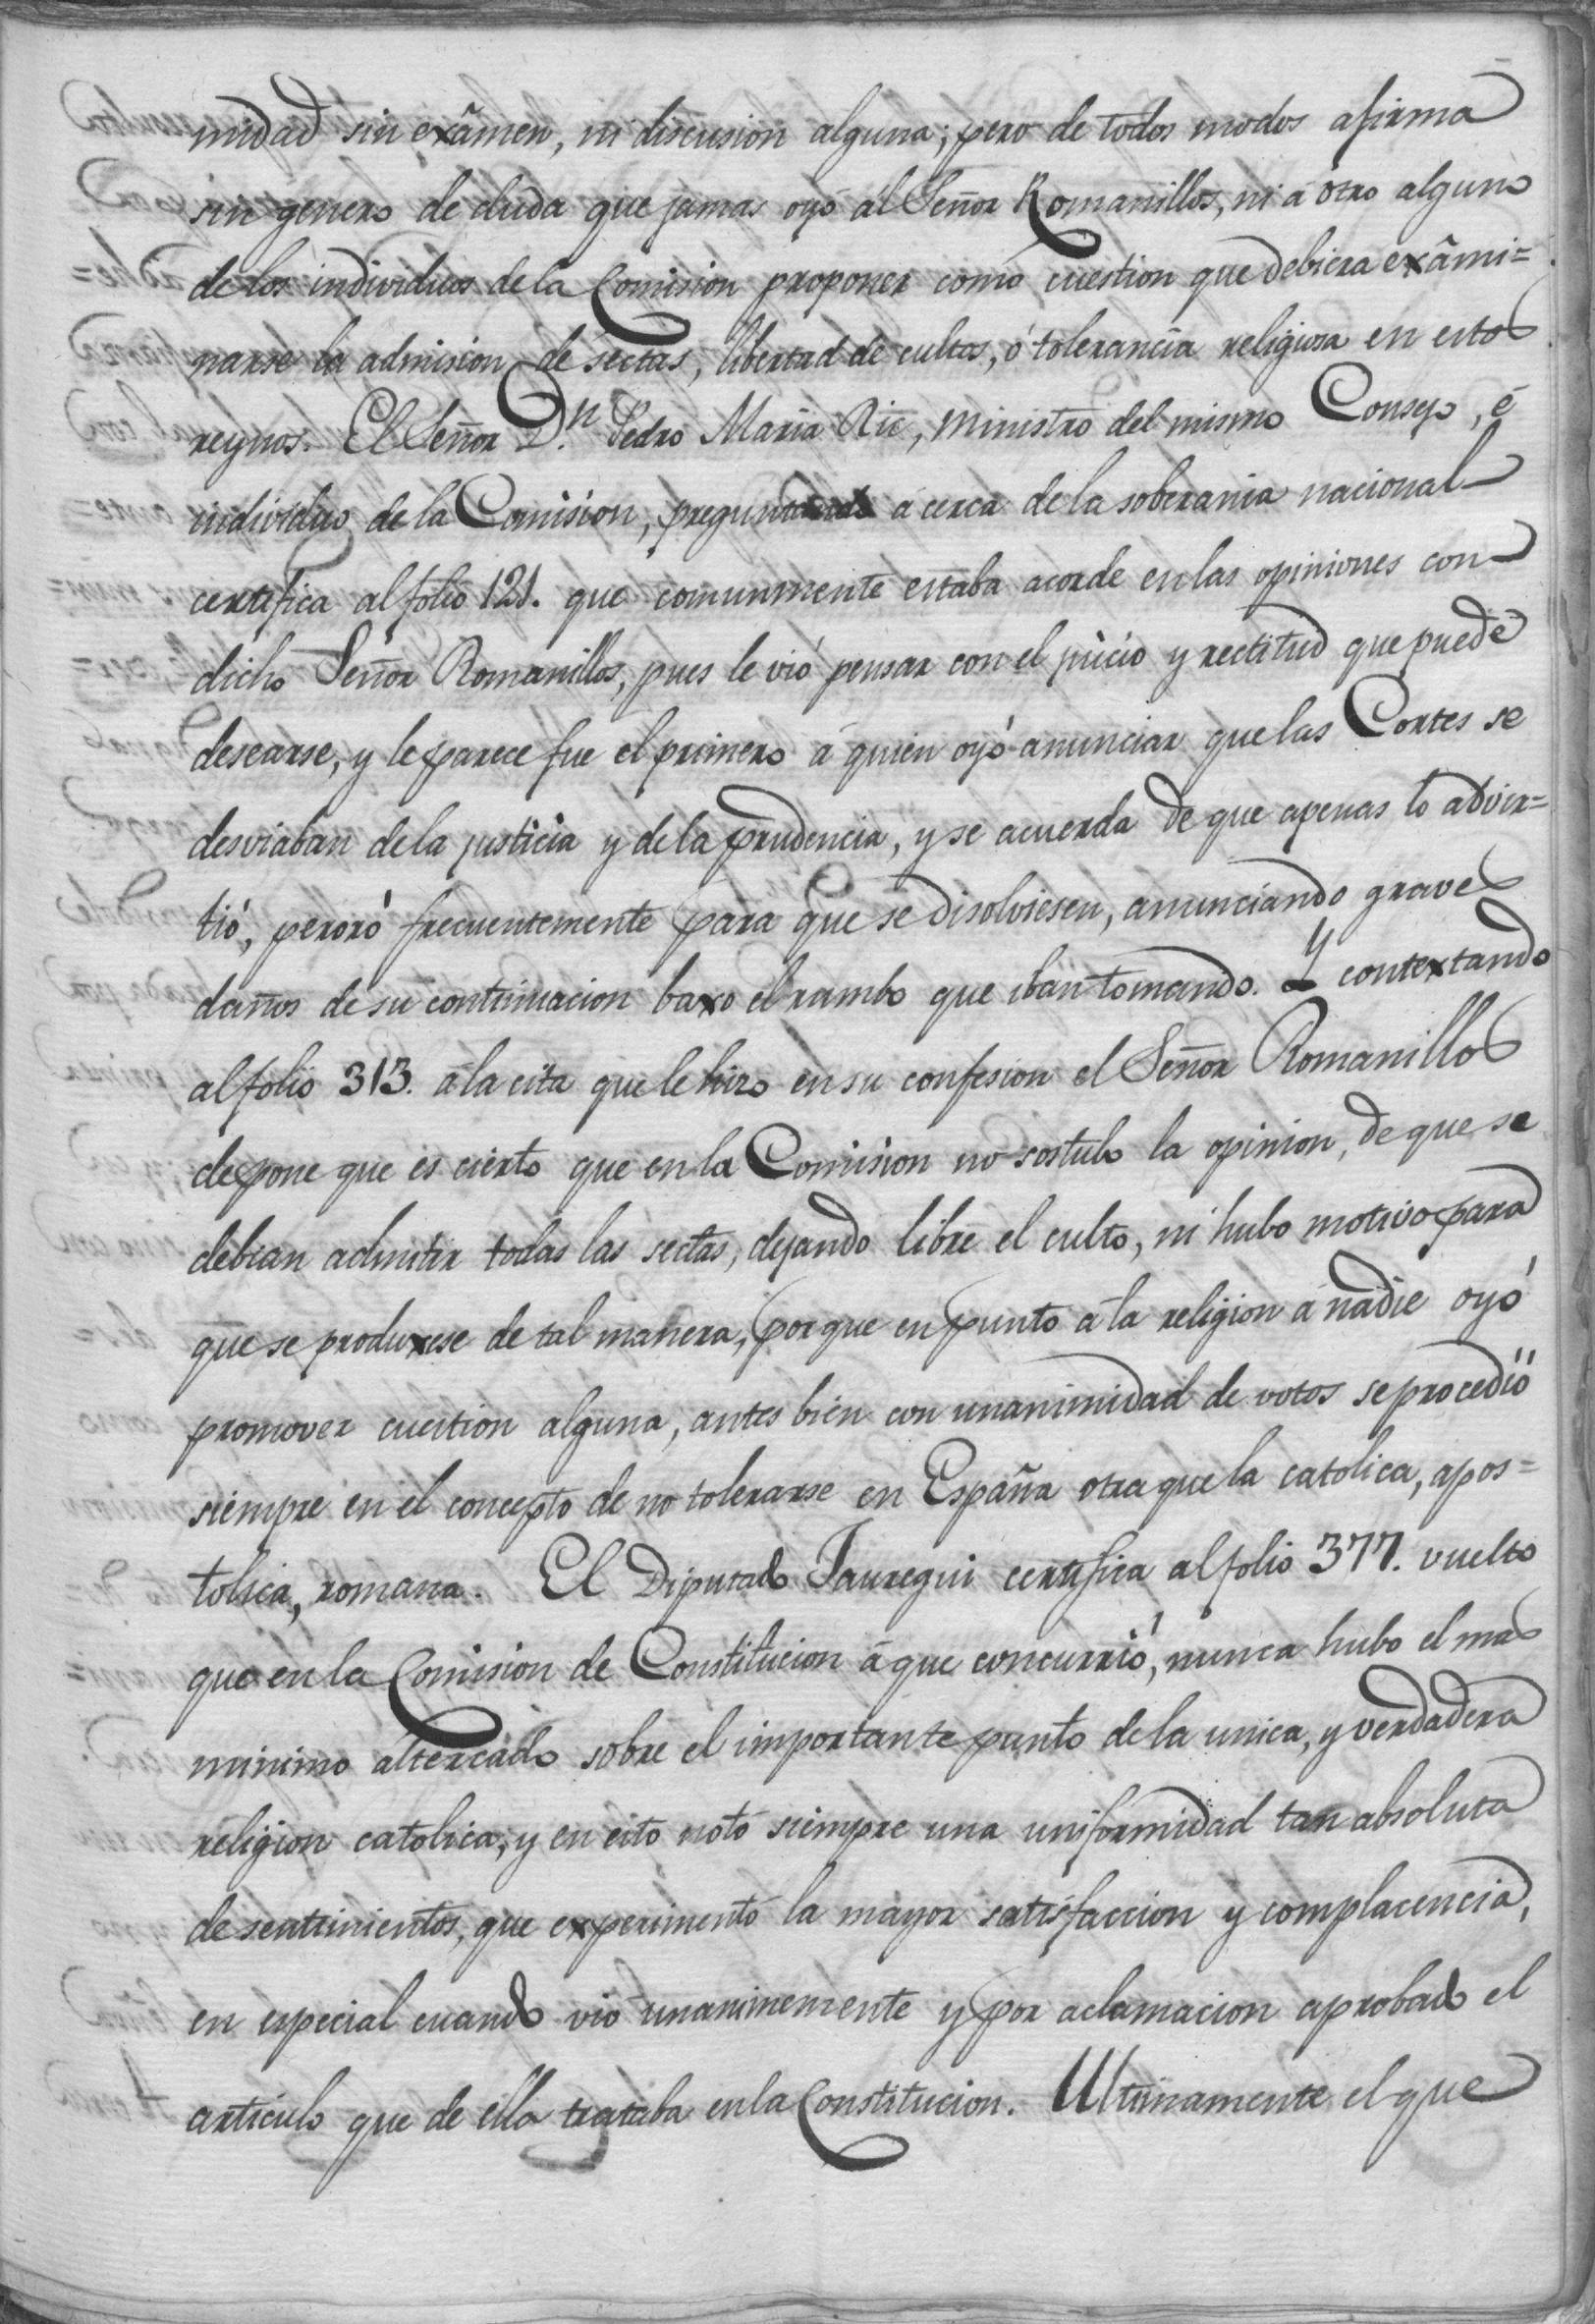 midad sin exâmen, ni discusion alguna; pero de todos modos afirma
sin genero de duda que jamas oyó ál Señor Romanillos, ni á otro alguno
de los individuos de la Comision proponer como cuestion que debiera exâmi=
narse la admision de sectas, libertad de cultos, ó tolerancia religiosa en estos
reynos. El Señor Dn. Pedro Maria Ric, Ministro del mismo Consejo, é
individuo de la Comision, preguntado á cerca de la soberania nacional
certifica al folio 121. que comunmente estaba acorde en las opiniones con
dicho Señor Romanillos, pues le vió pensar con el juicio y rectitud que puede
desearse, y le parece fue el primero á quien oyó anunciar que las Cortes se
desviaban de la justicia y de la prudencia, y se acuerda de que apenas lo advir=
tió, peroró frecuentemente para que se disolviesen, anunciando graves
daños de su continuacion baxo el rumbo que iban tomando. Y contextando
al folio 313. á la cita que le hizo en su confesion el Señor Romanillos
depone que es cierto que en la Comision no sostubo la opinion, de que se
debian admitir todas las sectas, dejando libre el culto, ni hubo motivo para
que se produxese de tal manera, porque en punto á la religion á nadie oyó
promover cuestion alguna, antes bien con unanimidad de votos se procedió
siempre en el concepto de no tolerarse en España otra que la catolica, apos=
tolica, romana. El Diputado Jauregui certifica al folio 377. vuelto
que en la Comision de Constitucion á que concurrió, nunca hubo el mas
minimo altercado sobre el importante punto de la unica, y verdadera
religion catolica, y en esto notó siempre una uniformidad tan absoluta
de sentimientos, que experimentó la mayor satisfaccion y complacencia,
en especial cuando vió unanimemente y por aclamacion aprobado el
articulo que de ella trataba en la Constitucion. Ultimamente el que